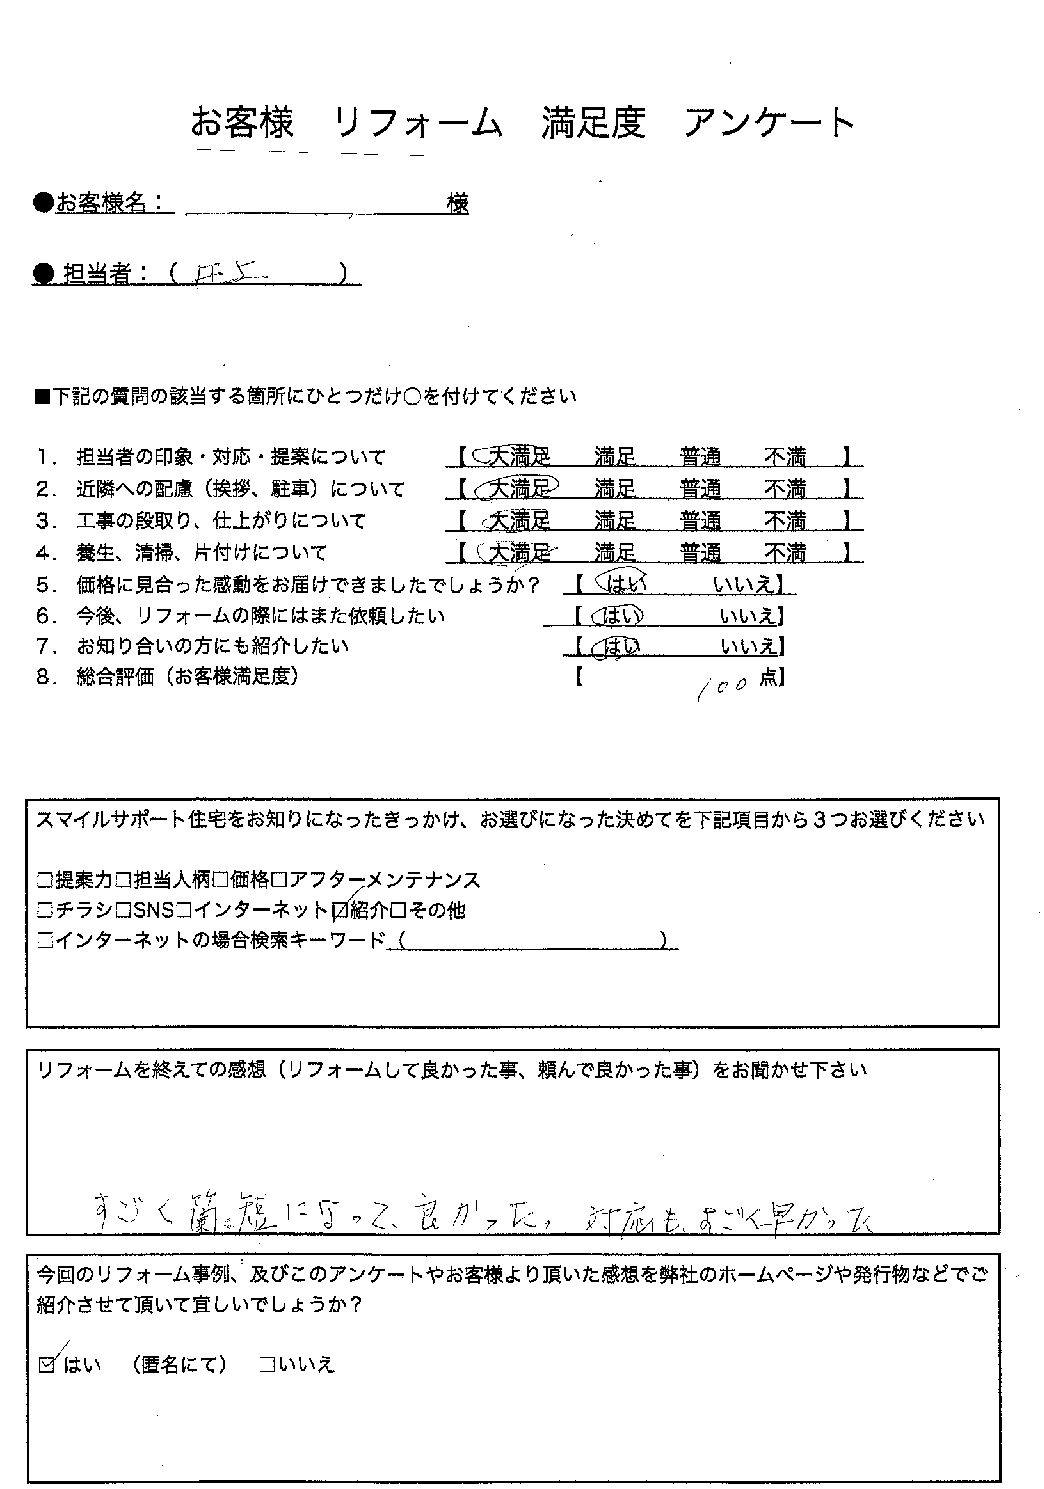 お客様 リフォーム 満足度 アンケート
●お客様名： 様
● 担当者：（ ）
■下記の質問の該当する箇所にひとつだけ○を付けてください
1． 担当者の印象・対応・提案について 【 大満足 満足 普通 不満 】
2． 近隣への配慮（挨拶、駐車）について 【 大満足 満足 普通 不満 】
3． 工事の段取り、仕上がりについて 【 大満足 満足 普通 不満 】
4． 養生、清掃、片付けについて 【 大満足 満足 普通 不満 】
5． 価格に見合った感動をお届けできましたでしょうか？ 【 はい いいえ】
6． 今後、リフォームの際にはまた依頼したい 【 はい いいえ】
7． お知り合いの方にも紹介したい 【 はい いいえ】
8． 総合評価（お客様満足度） 【 100 点】
スマイルサポート住宅をお知りになったきっかけ、お選びになった決めてを下記項目から３つお選びください
□提案力□担当人柄□価格□アフターメンテナンス
□チラシ□SNS□インターネット☑紹介□その他
□インターネットの場合検索キーワード（ ）
リフォームを終えての感想（リフォームして良かった事、頼んで良かった事）をお聞かせ下さい
すごく になって、良かった。対応もすごく早かった
今回のリフォーム事例、及びこのアンケートやお客様より頂いた感想を弊社のホームページや発行物などでご
紹介させて頂いて宜しいでしょうか？
☑はい （匿名にて） □いいえ